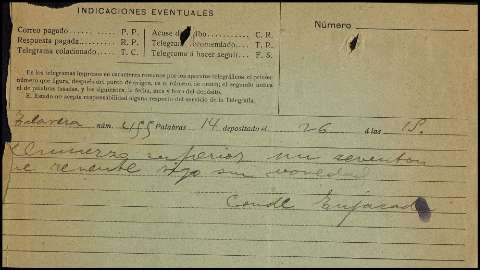 INDICACIONES EVENTUALES
Correo pagado P. P. Acuse de recibo C. R.
Respuesta pagada R. P. Telegrama recomendado T. R.
Telegrama colacionado T. C. Telegrama á hacer seguir F. S.
Número
En los telegramas impresos en caracteres romanos por los aparatos telegráficos, el primer
número que figura, después del punto de origen, es el número de orden; el segundo indica
el de palabras tasadas, y los siguientes, la fecha, mes y hora del depósito.
El Estado no acepta responsabilidad alguna respecto del servicio de la Telegrafía.
Talavera núm. 455 Palabras 14 depositado el 26 á las 18.
Almuerzo superior
sin novedad
Conde